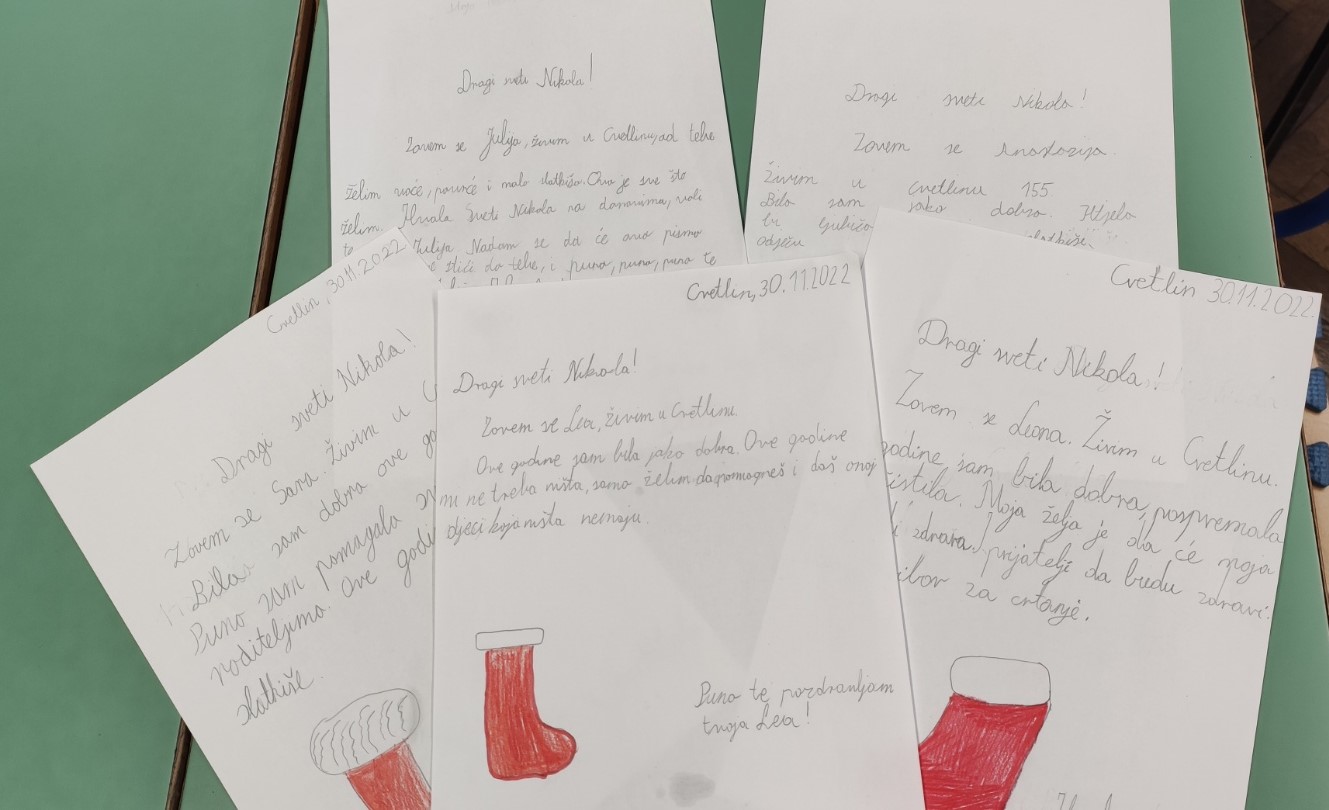 Dragi sveti Nikola!
Zovem se Julija, živim u Cvetlinu, od tebe
želim voće, povrće i malo slatkiša. Ovo je sve što
želim. Hvala Sveti Nikola na darovima, voli
te Julija. Nadam se da će ovo pismo
stići do tebe, i puno, puno, puno te
Dragi sveti Nikola!
Zovem se Anastazija.
Živim u Cvetlinu 155
Bila sam jako dobra. Htjela
bi ljubičo
odjeću slatkiše
Cvetlin, 30.11.2022
Dragi sveti Nikola!
Zovem se Sara. Živim u C
Bila sam dobra ove go
Puno sam pomagala
roditeljima. Ove godi
slatkiše.
Cvetlin, 30.11.2022
Dragi sveti Nikola!
Zovem se Lea, živim u Cvetlinu.
Ove godine sam bila jako dobra. Ove godine
mi ne treba ništa, samo želim da pomogneš i daš onoj
djeci koja ništa nemaju.
Puno te pozdravljam
tvoja Lea!
Cvetlin 30.11.2022.
Dragi sveti Nikola!
Zovem se Leona. Živim u Cvetlinu.
godine sam bila dobra, pospremala
istila. Moja želja je da će moja
zdrava, prijatelji da budu zdravi.
ibor za crtanje.